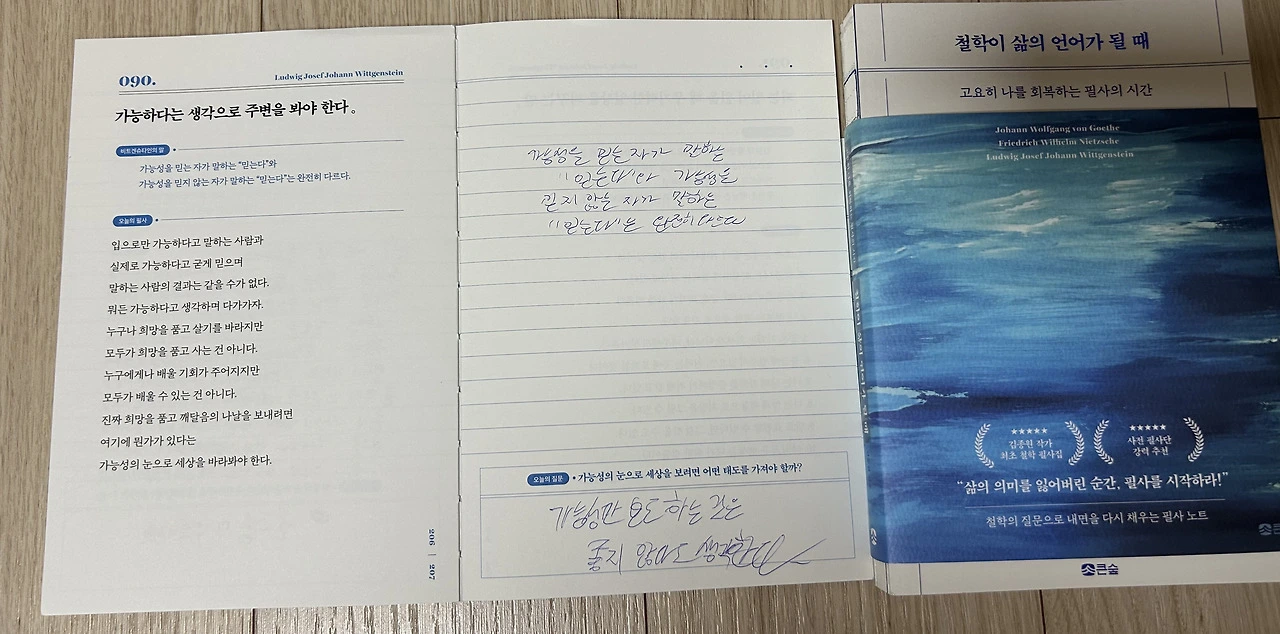 090.
Ludwig Josef Johann Wittgenstein
가능하다는 생각으로 주변을 봐야 한다.
비트겐슈타인의 말
가능성을 믿는 자가 말하는 “믿는다”와
가능성을 믿지 않는 자가 말하는 “믿는다”는 완전히 다르다.
오늘의 필사
입으로만 가능하다고 말하는 사람과
실제로 가능하다고 굳게 믿으며
말하는 사람의 결과는 같을 수가 없다.
뭐든 가능하다고 생각하며 다가가자.
누구나 희망을 품고 살기를 바라지만
모두가 희망을 품고 사는 건 아니다.
누구에게나 배울 기회가 주어지지만
모두가 배울 수 있는 건 아니다.
진짜 희망을 품고 깨달음의 나날을 보내려면
여기에 뭔가가 있다는
가능성의 눈으로 세상을 바라봐야 한다.
206 | 207
가능성을 믿는 자가 말하는
"믿는다"와 가능성을
믿지 않는 자가 말하는
"믿는다"는 완전히 다르다
오늘의 질문
가능성의 눈으로 세상을 보려면 어떤 태도를 가져야 할까?
가능성만 보도 하는 것은
좋지 않다고 생각한다
철학이 삶의 언어가 될 때
고요히 나를 회복하는 필사의 시간
Johann Wolfgang von Goethe
Friedrich Wilhelm Nietzsche
Ludwig Josef Johann Wittgenstein
김종원 작가
최초 철학 필사집
사전 필사단
강력 추천
“삶의 의미를 잃어버린 순간, 필사를 시작하라!”
철학의 질문으로 내면을 다시 채우는 필사 노트
큰숲
철학이 삶의 언어가 될 때